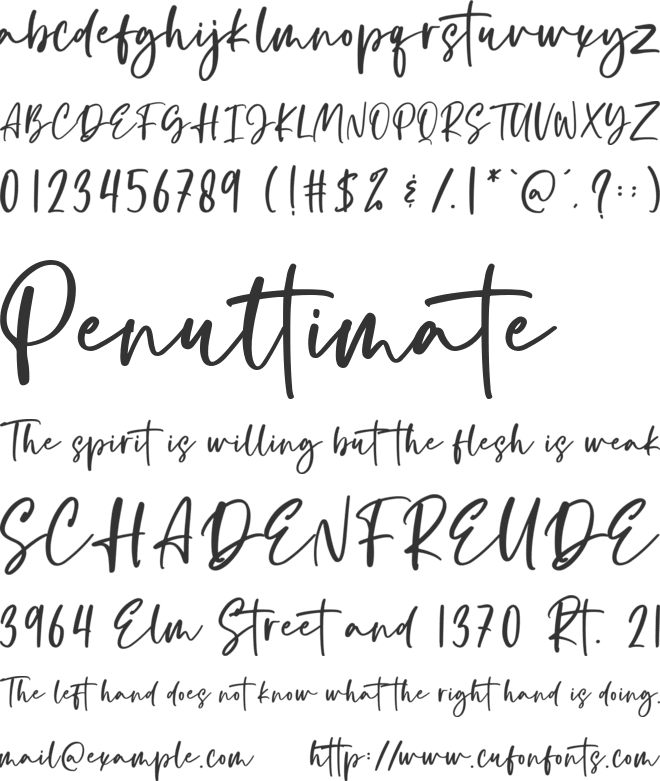 abcdefghijklmnopqrstuvwxyz
ABCDEFGHIJKLMNOPQRSTUVWXYZ
0123456789 (!#$% & /.|*`@´,?::)
Penultimate
The spirit is willing but the flesh is weak
SCHADENFREUDE
3964 Elm Street and 1370 Rt. 21
The left hand does not know what the right hand is doing.
mail@example.com http://www.cufonfonts.com